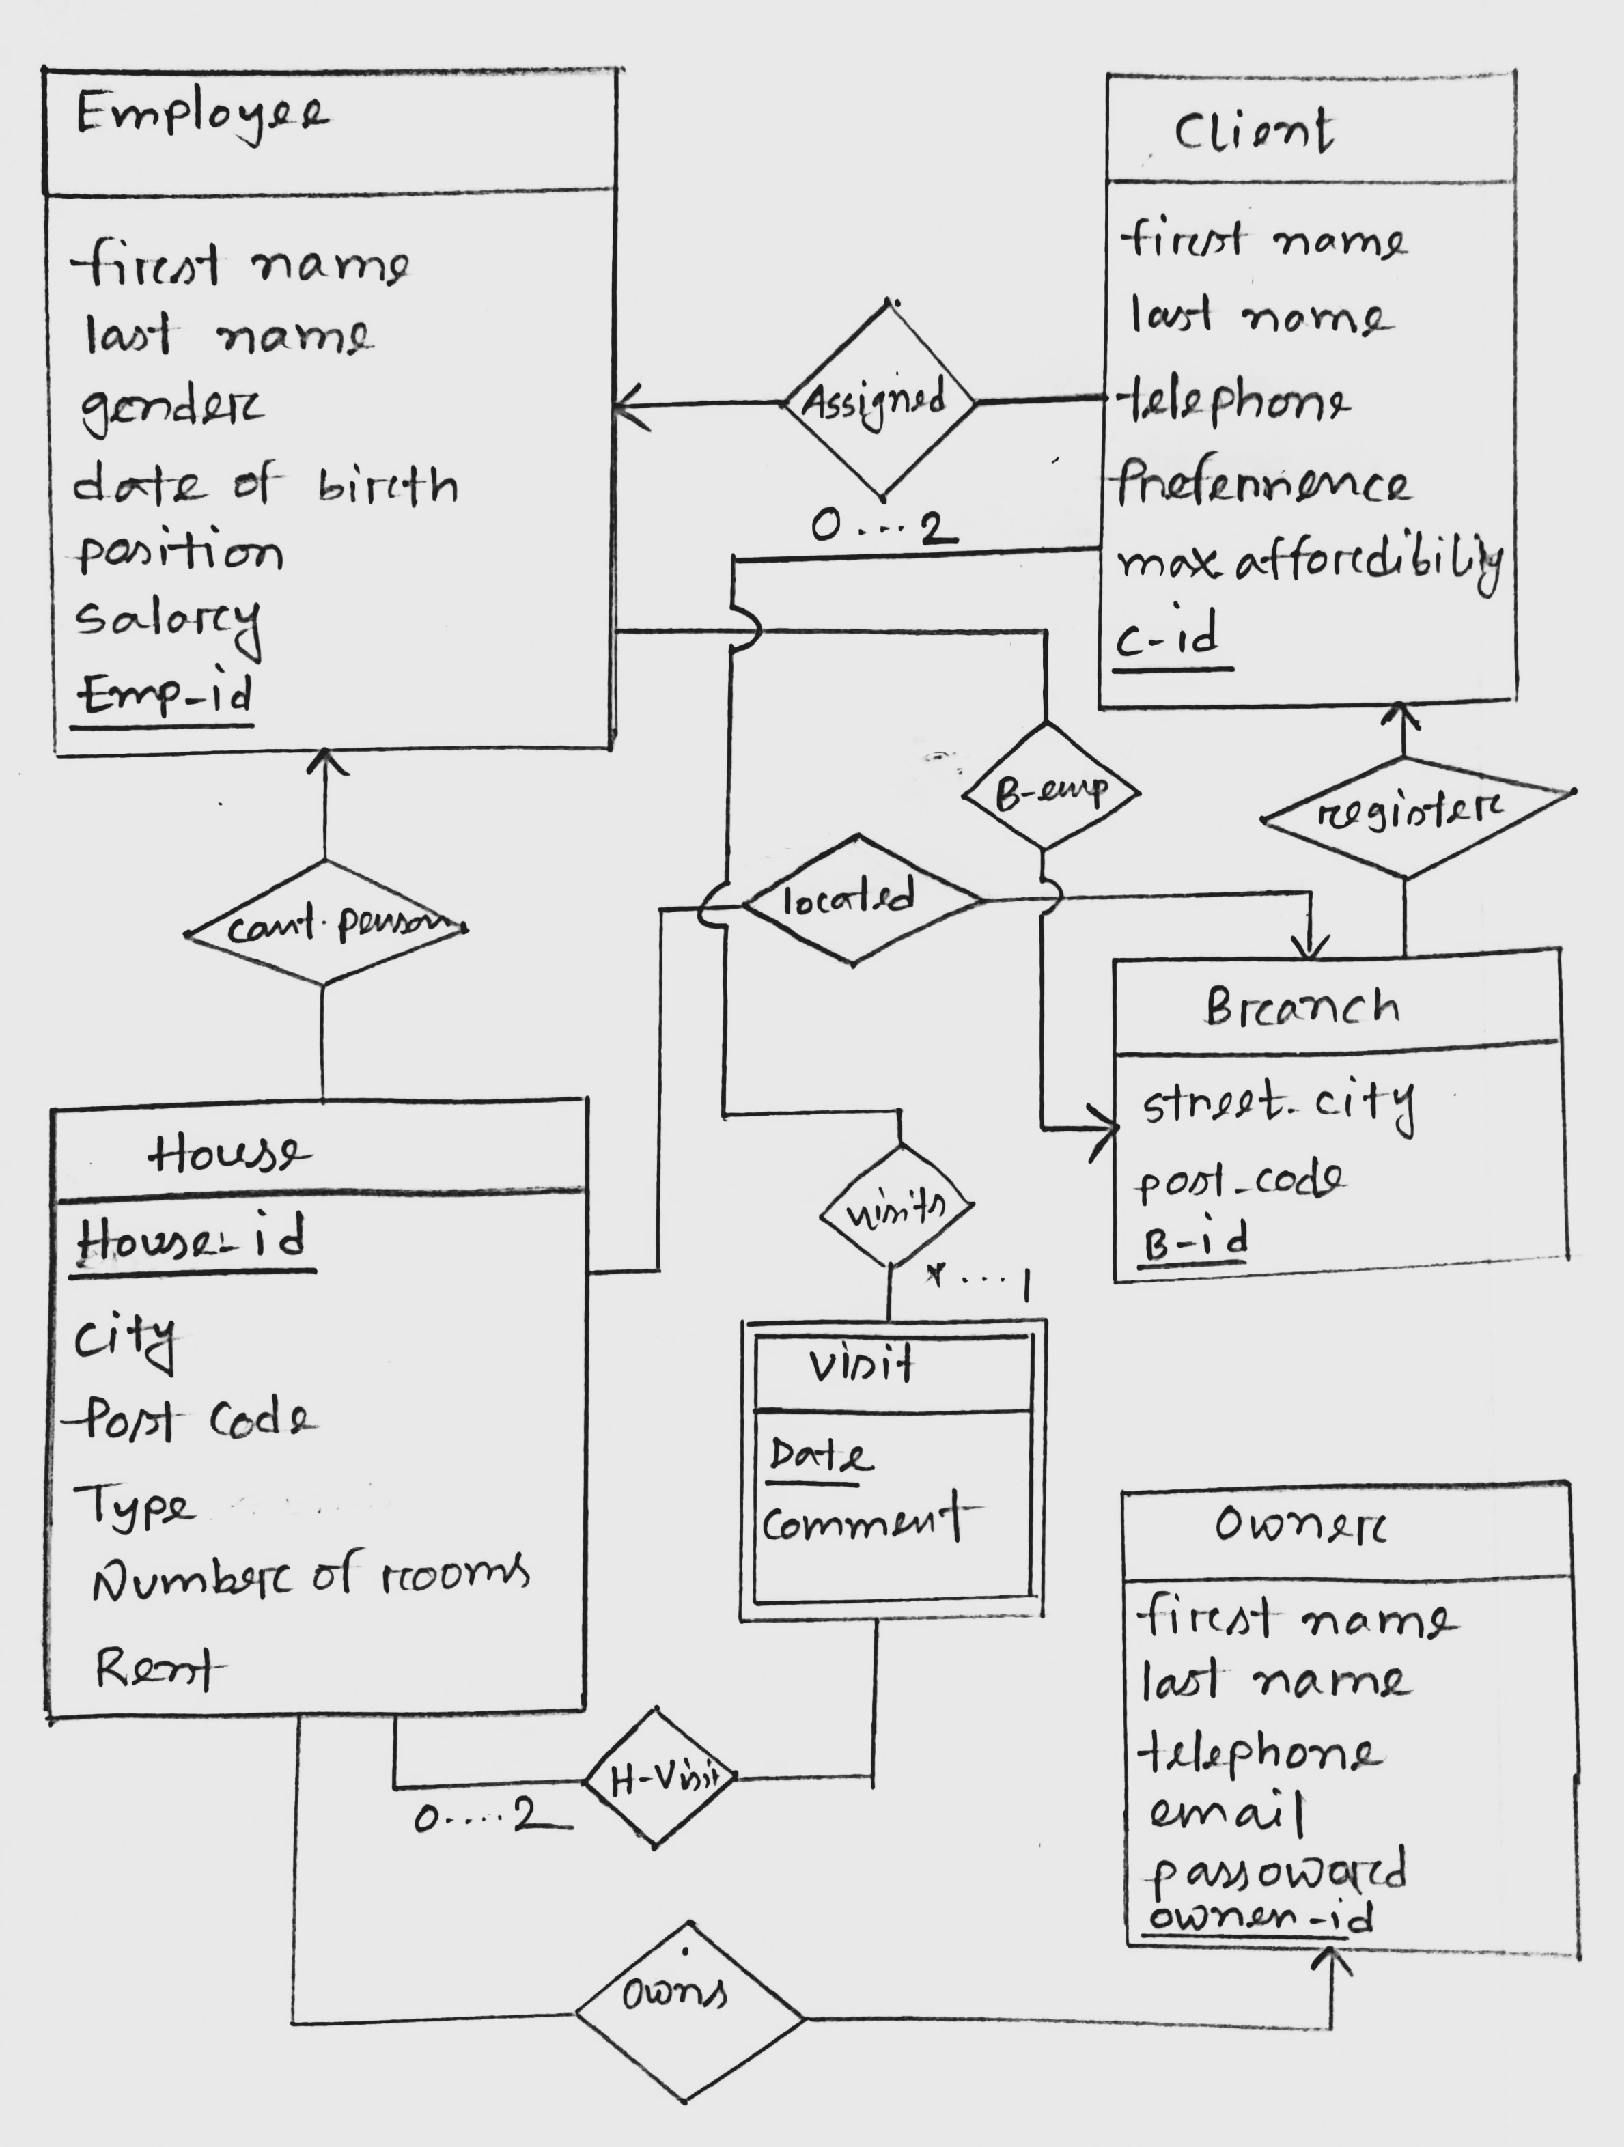 Employee
first name
last name
gender
date of birth
position
salary
Emp-id
Client
first name
last name
telephone
Prefennence
max affordibility
C-id
Assigned
0...2
B-emp
register
cont. person
located
Branch
street. city
post-code
B-id
House
House-id
City
Post Code
Type
Number of rooms
Rent
visits
*...1
Visit
Date
Comment
H-Visit
0....2
Owner
first name
last name
telephone
email
passoward
ownen-id
owns